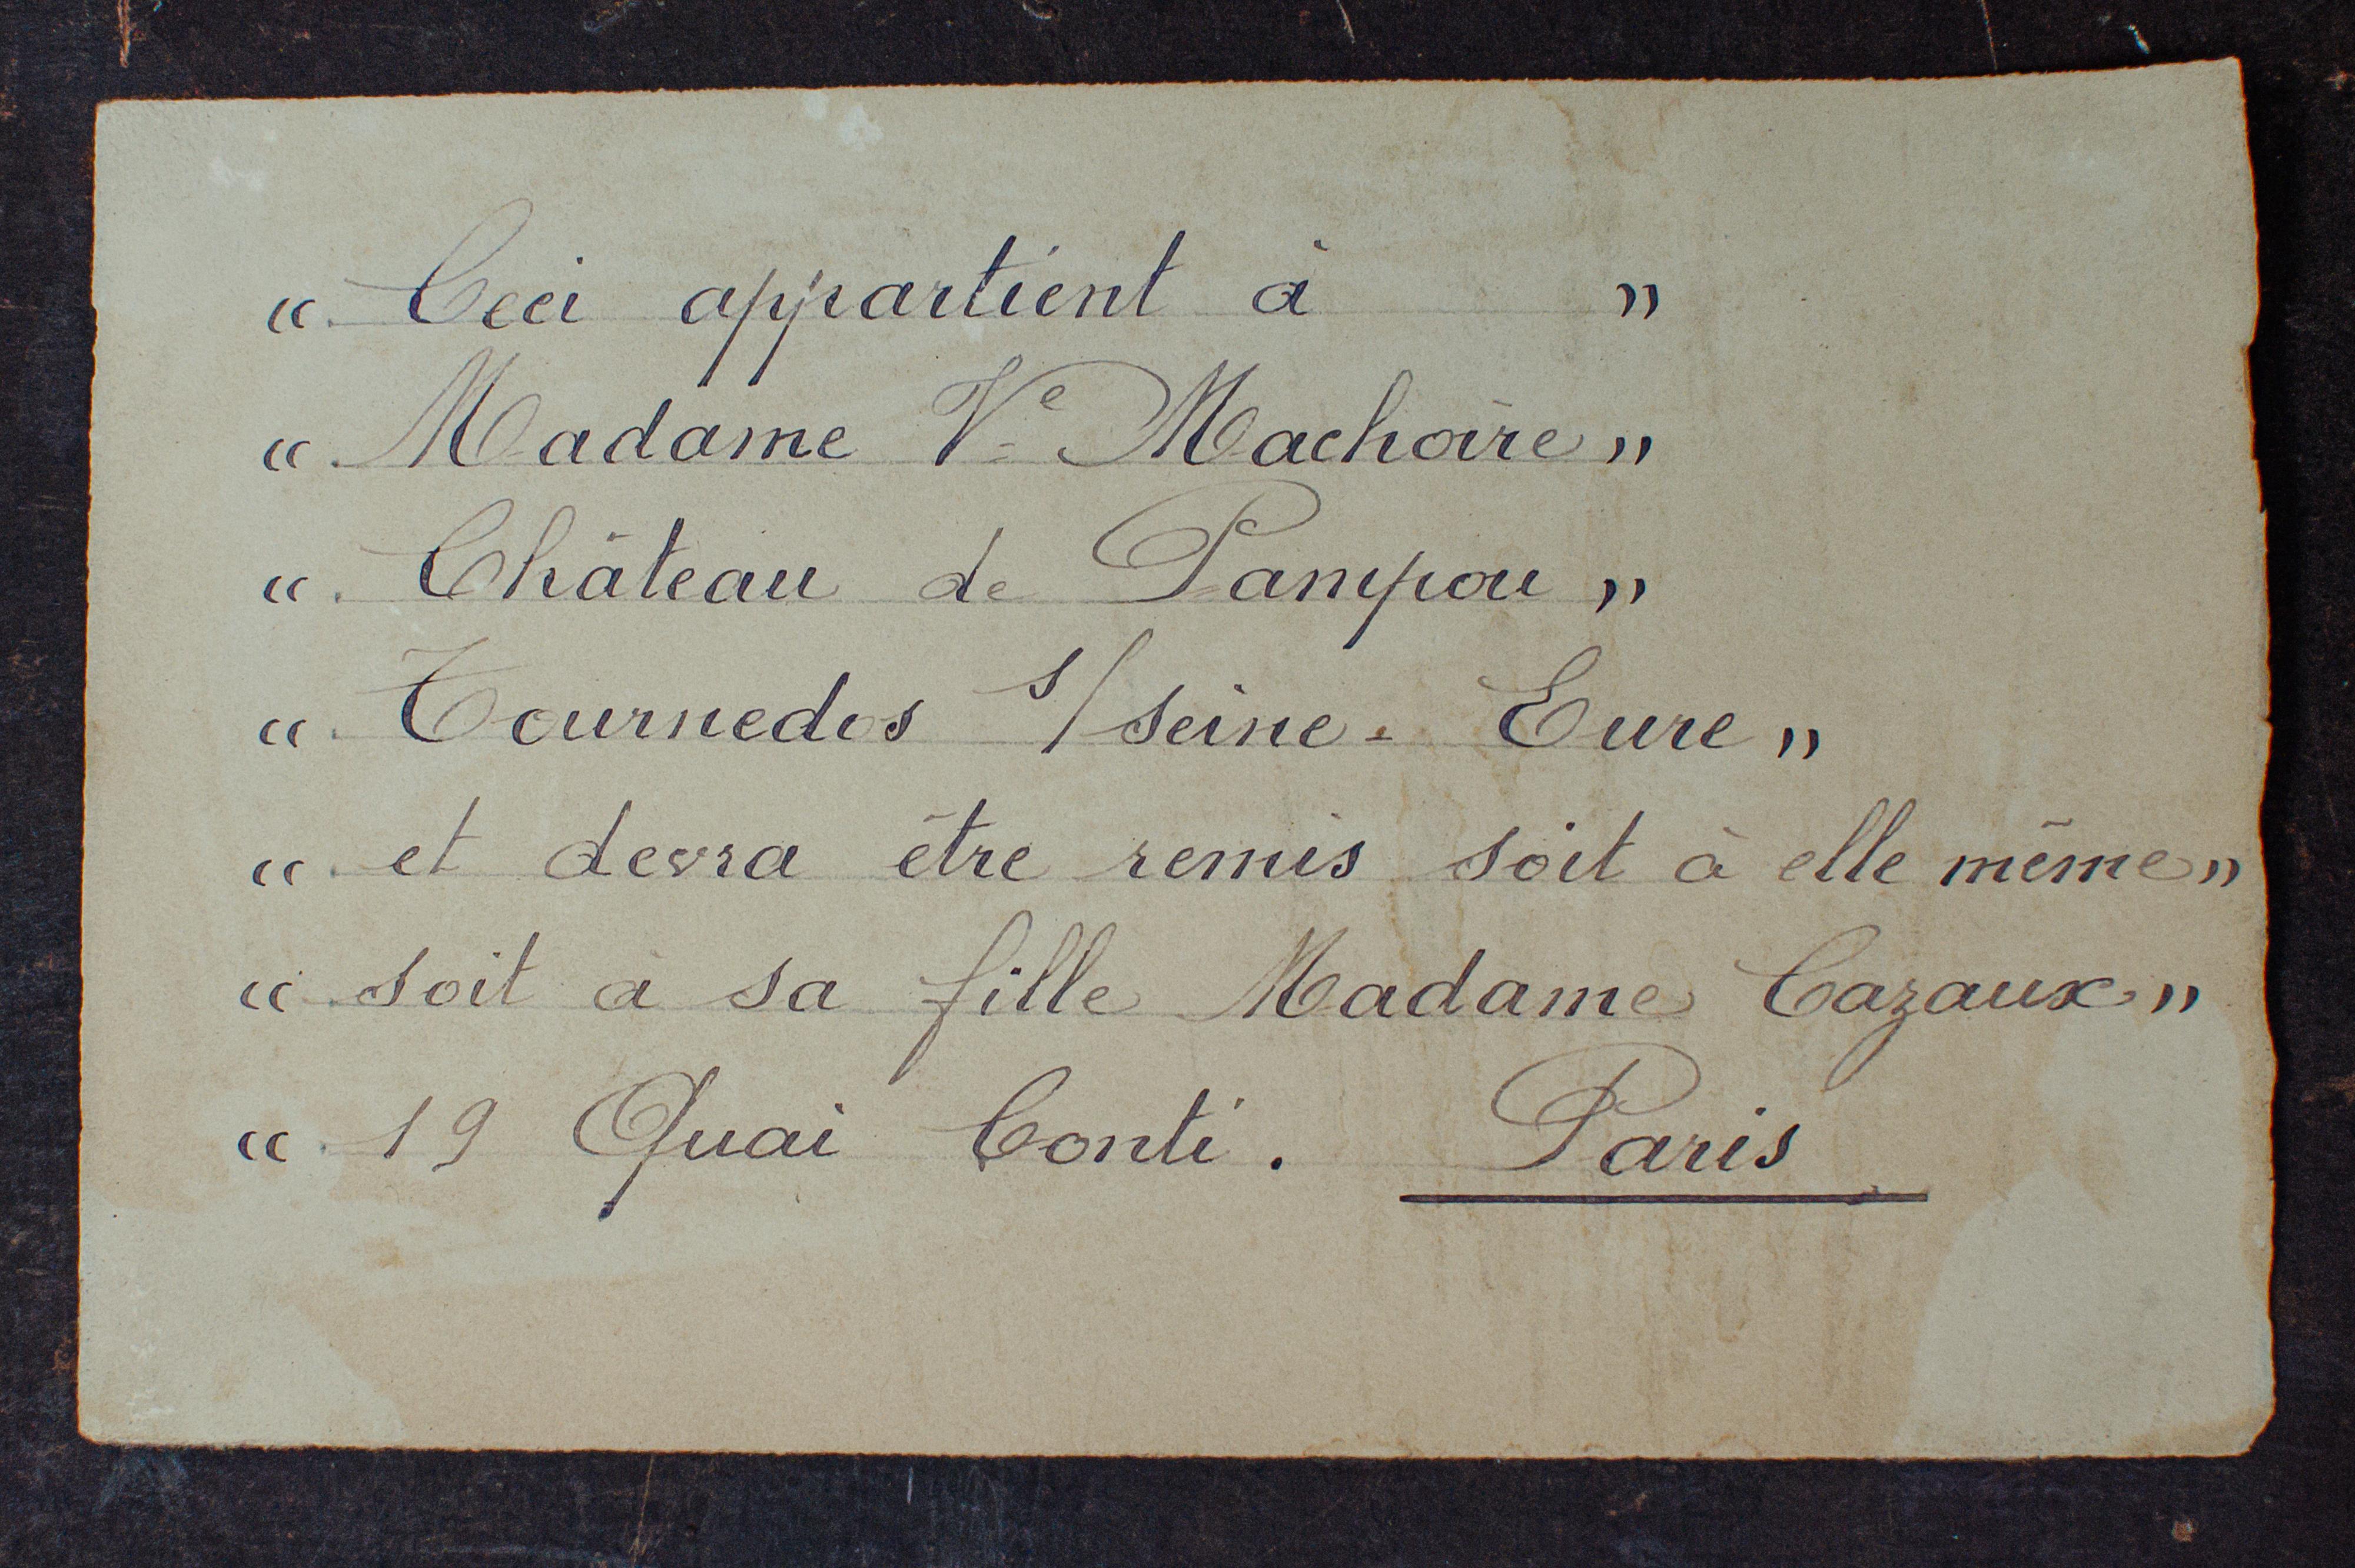 « Ceci appartient à »
« Madame Ve Machoire »
« Château de Pampou »
« Tournedos s/ seine - Eure »
« et devra être remis soit à elle même »
« soit à sa fille Madame Cazaux »
« 19 Quai Conti. Paris